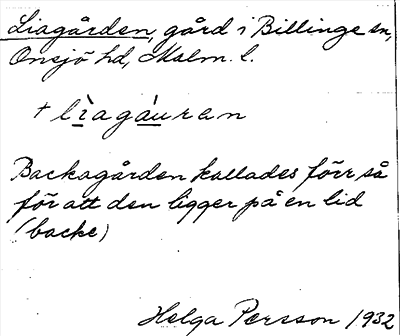 Liagården, gård i Billinge sn,
Onsjö hd, Malm. l.
+ lìagáuran
Backagården kallades förr så
för att den ligger på en lid
(backe)
Helga Persson 1932